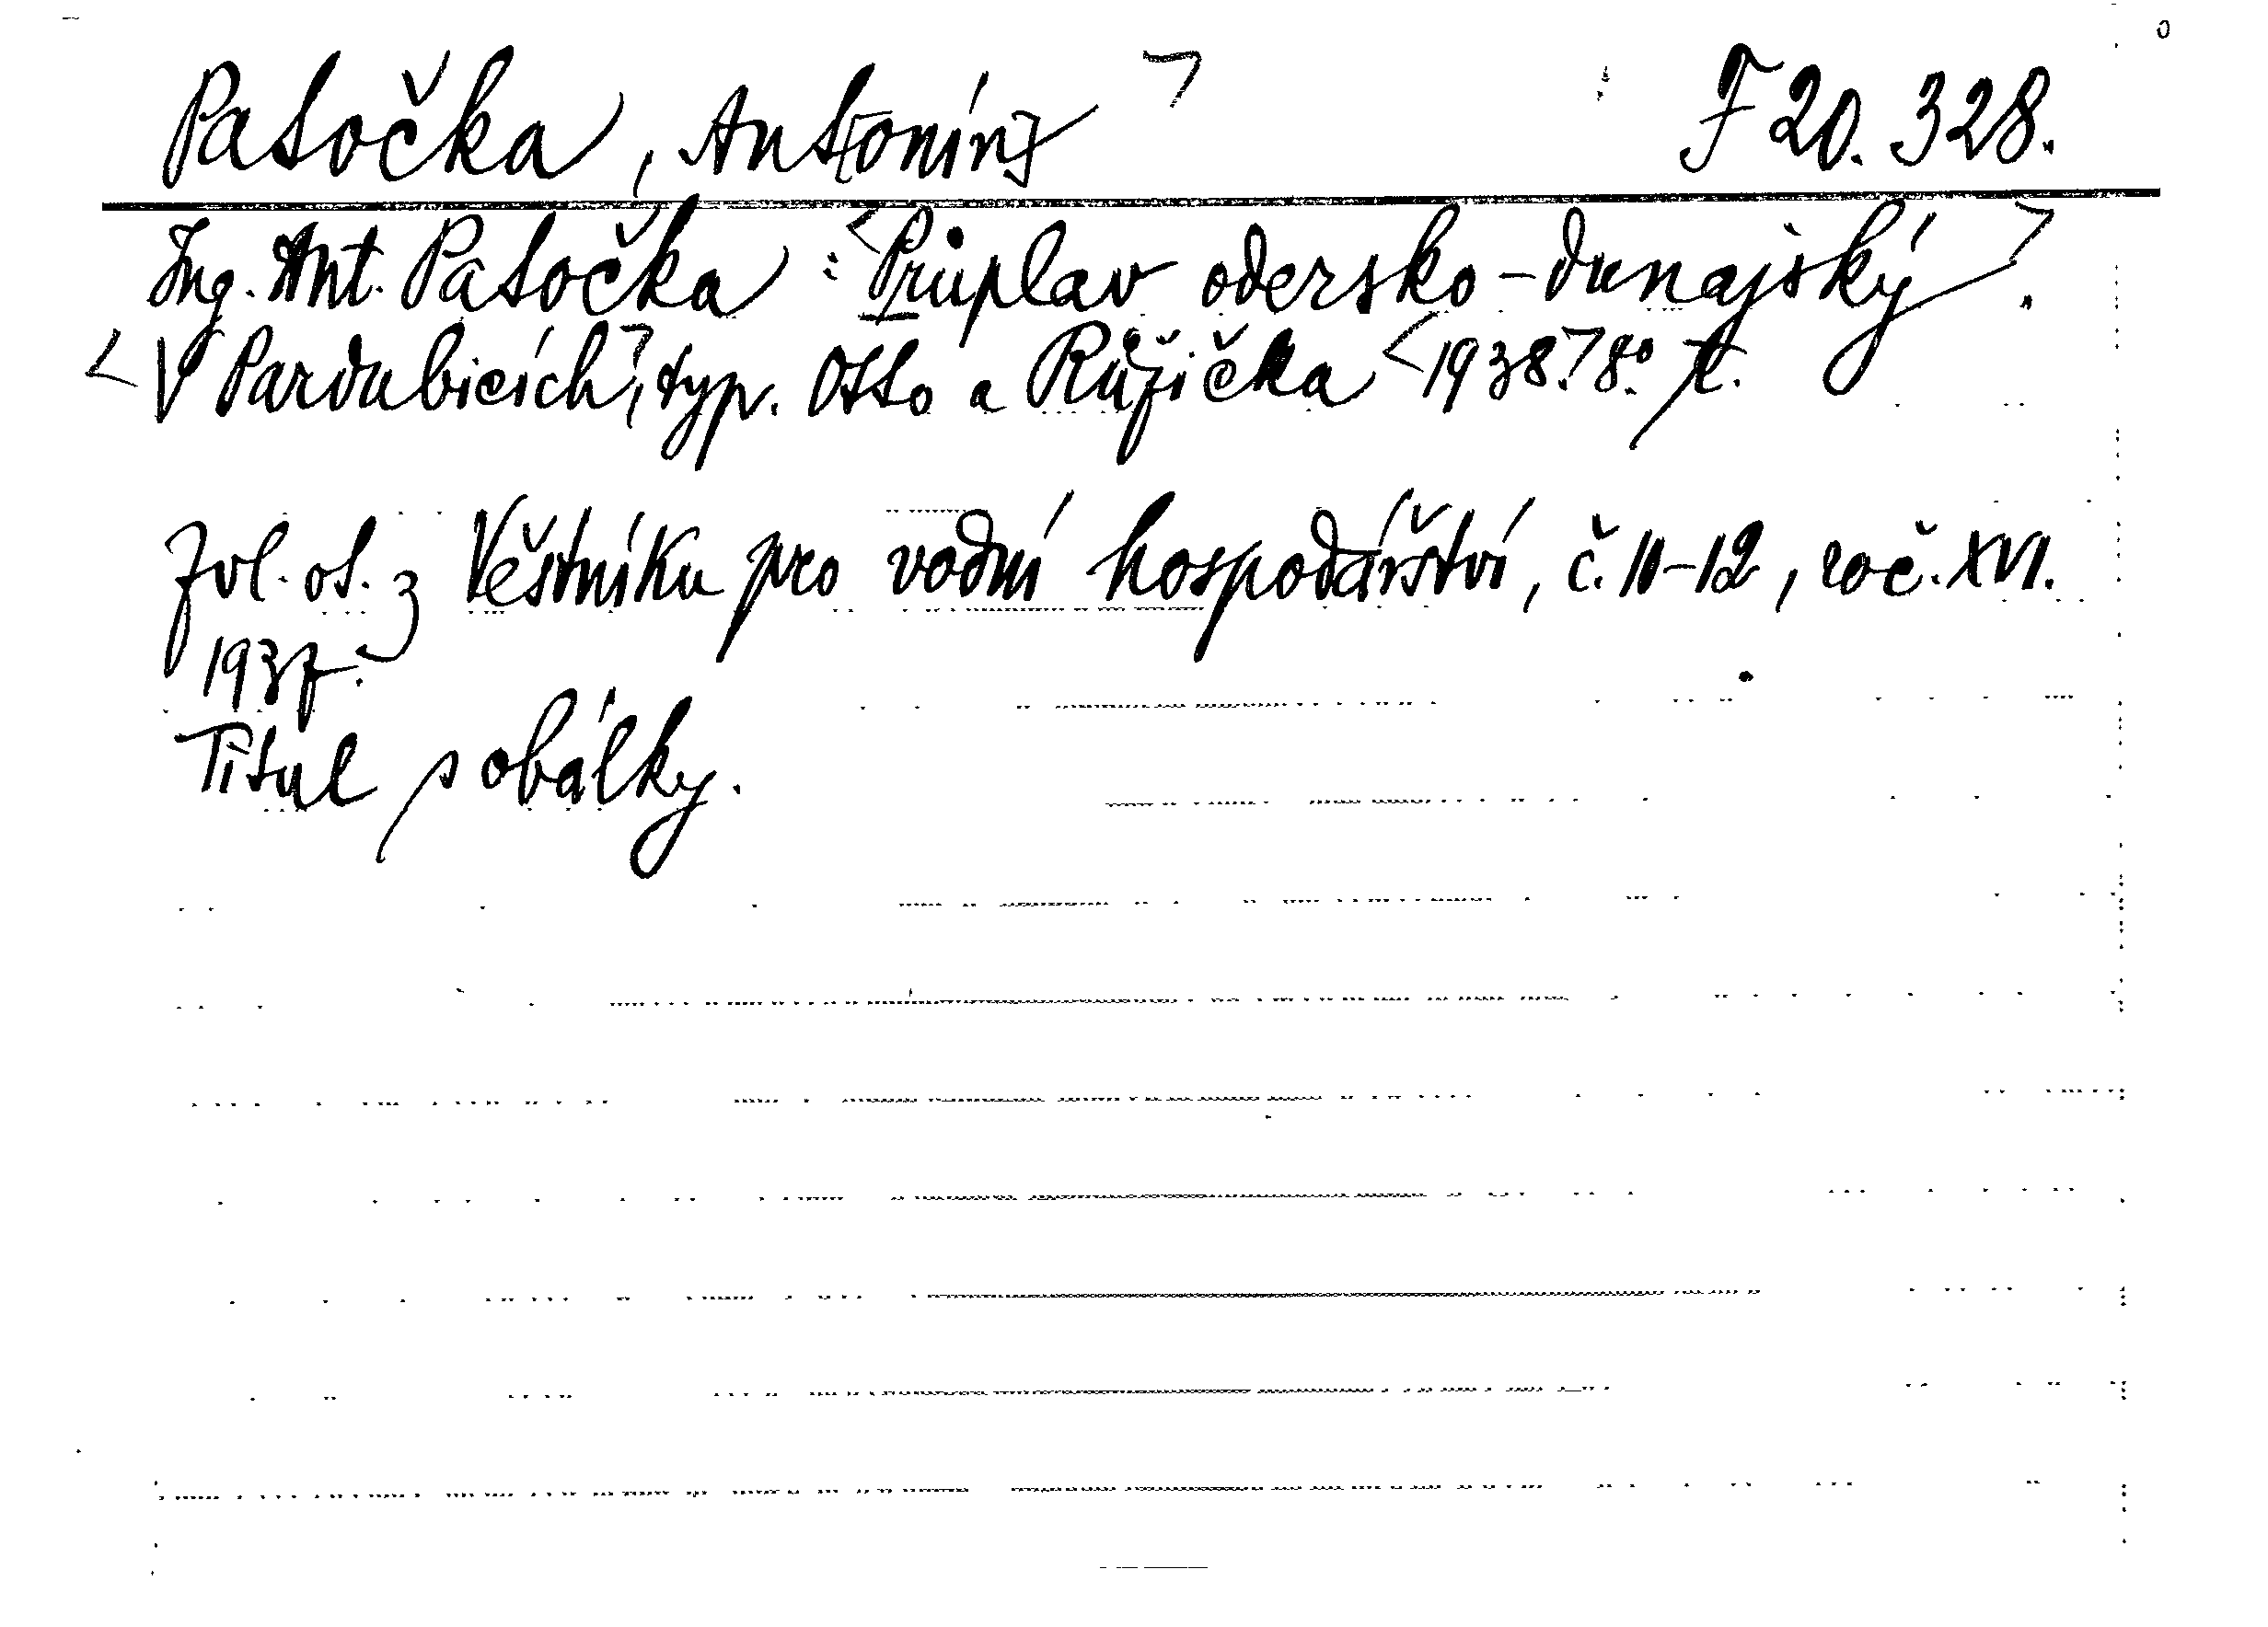 Patočka, Ant[onín] F 20.328.
Ing. Ant. Patočka: <Průplav odersko-dunajský>.
<V Pardubicích>, typ. Otto a Růžička <1938.> 8° t.
Zvl. ot. z Věstníku pro vodní hospodářství, č. 11-12, roč. XVI.
1937.
Titul s obálky.